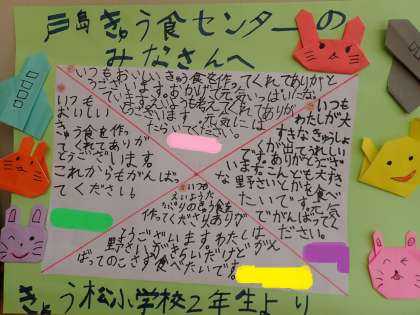 戸島きゅう食センターの
みなさんへ
いつもおいしいきゅう食を作ってくれてありがと
うございます。おかげで元気いっぱい
ていますえいようも考えてくれてありが
とうございます。元気には
たらいてください。
いつも
おいしい
きゅう食を作っ
てくれてありが
とうございます
これからもがんばっ
てください。
いつも
わたしが大
すきなきゅうしょ
くが出てうれしい
です。ありがとうござ
います。こんども大すき
な野さいとかを食べ
たいです。元気
でがんばって
ください。
いつも
えいようた
っぷりのきゅう食を
作ってくださりありが
とうございます。わたしは
野さいがきらいだけどがん
ばってのこさず食べたいです。
きょう松小学校2年生より